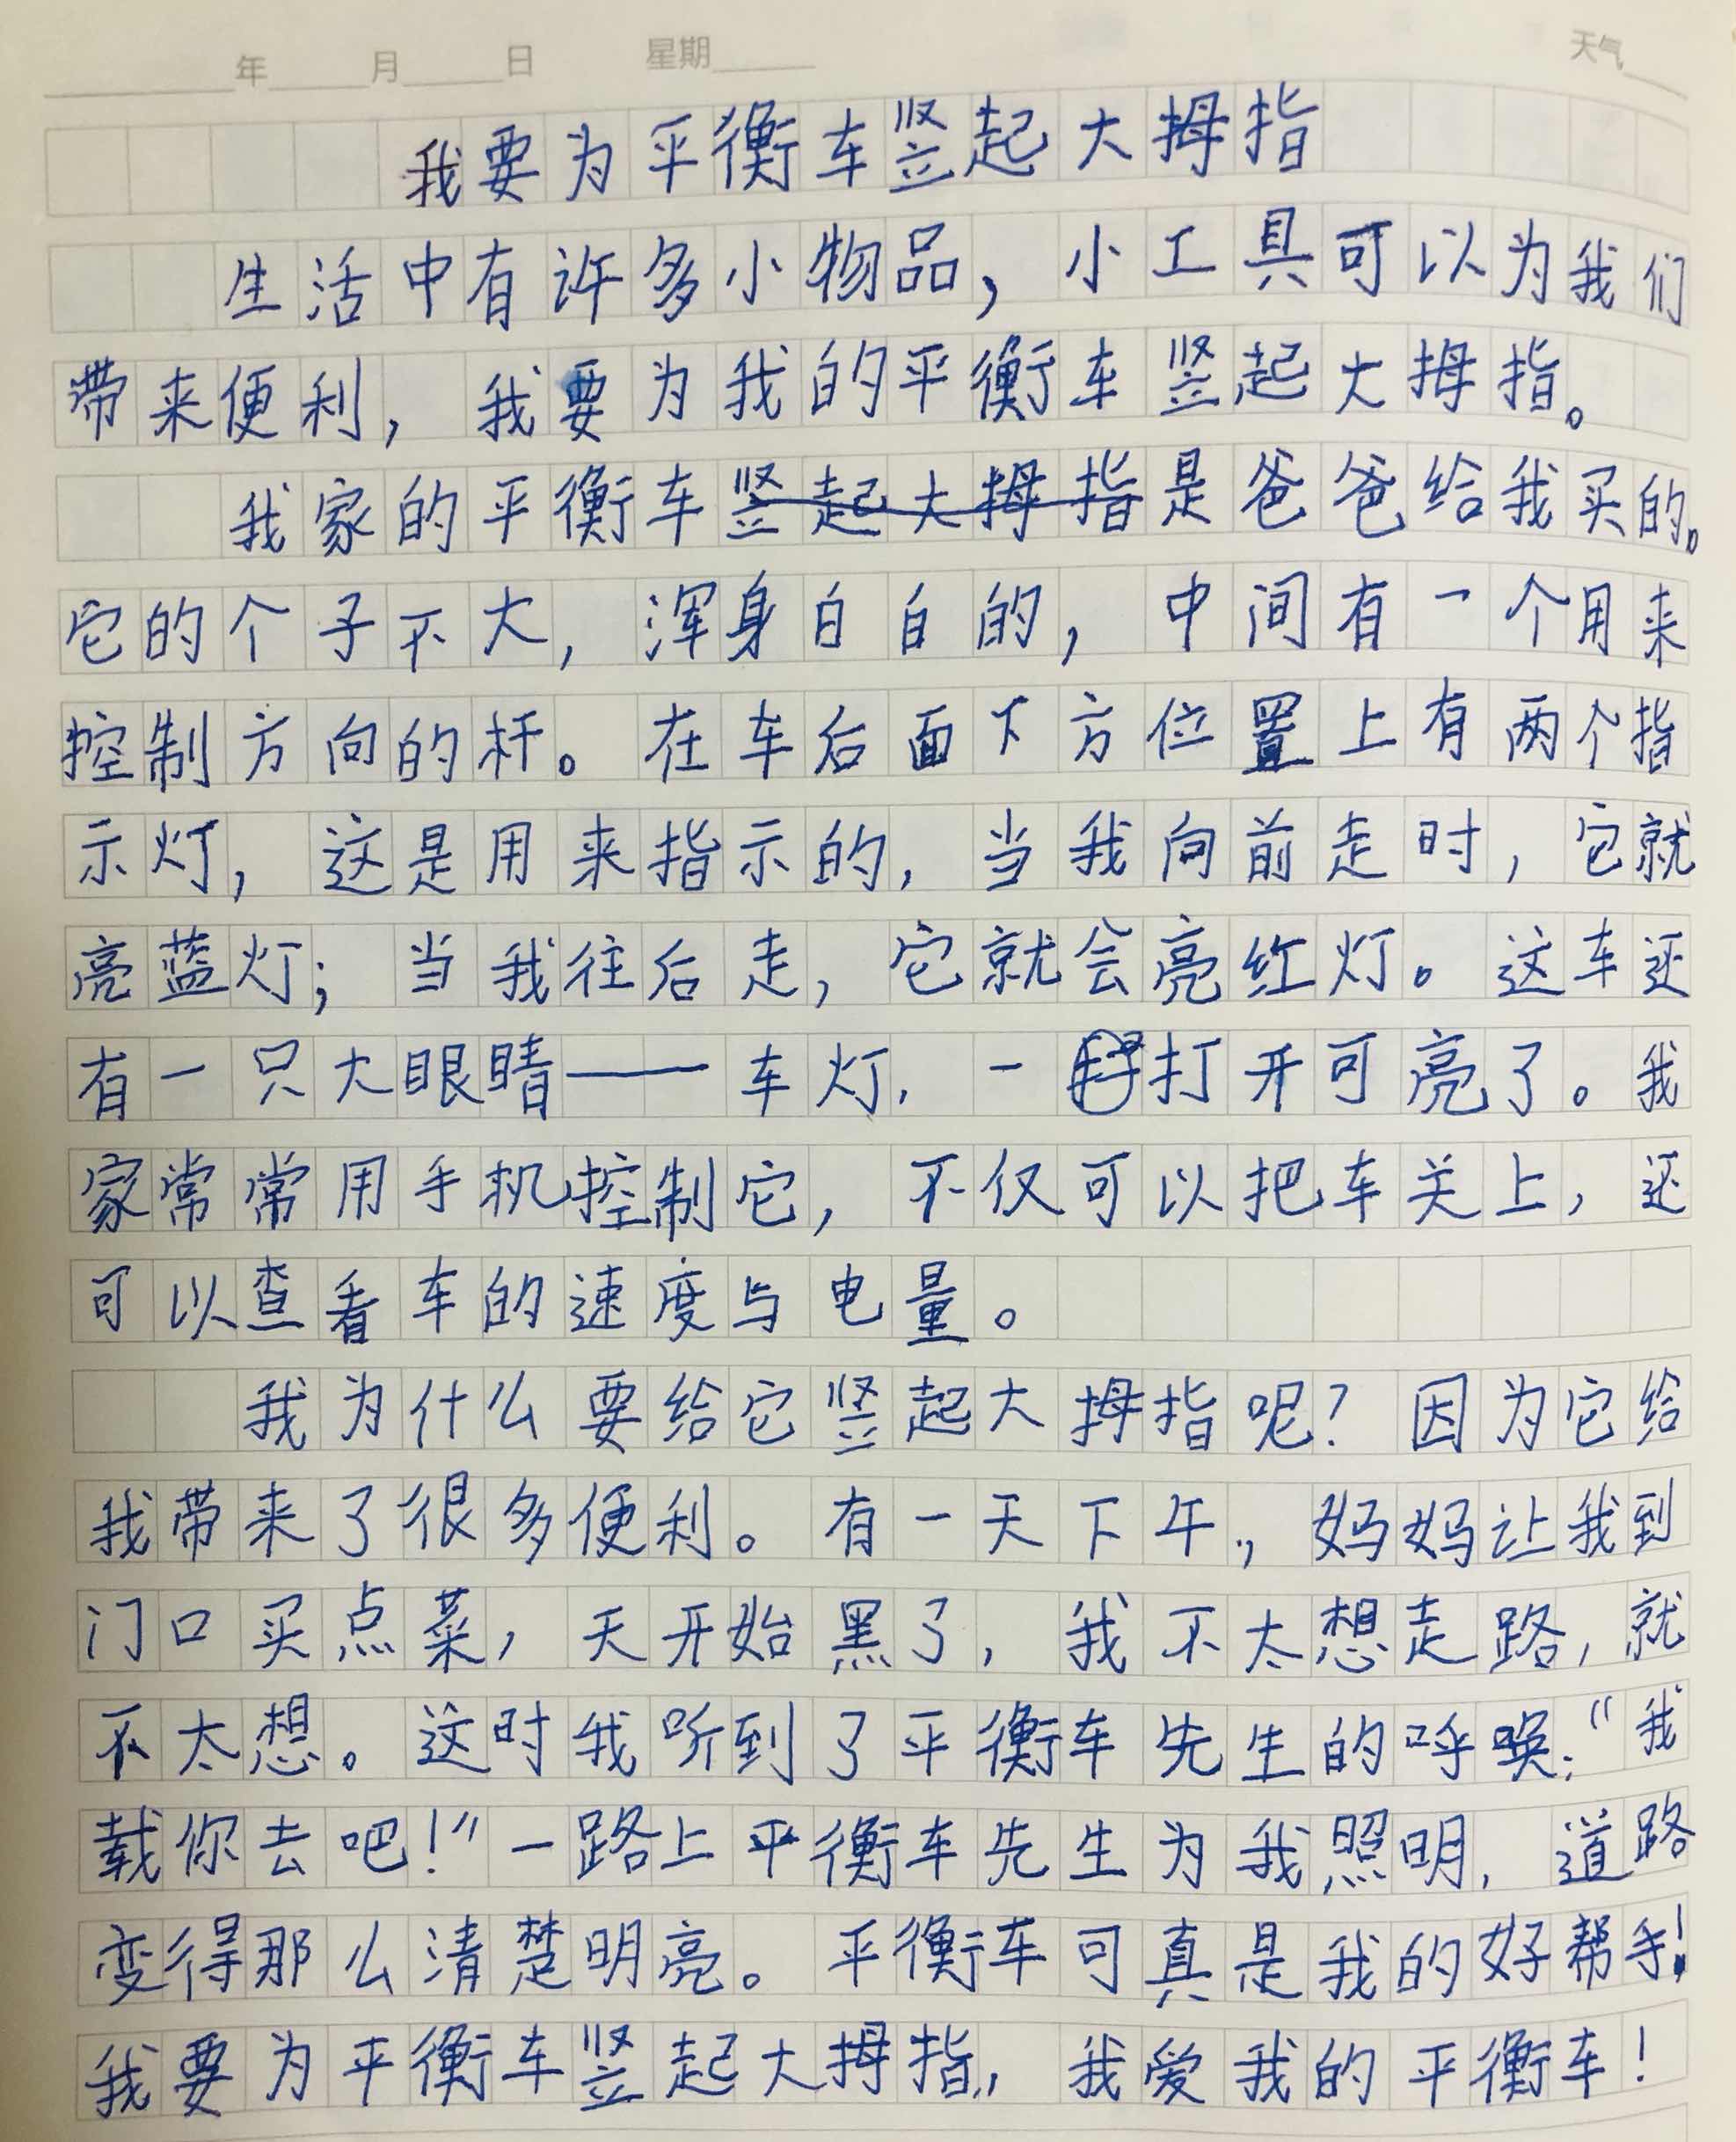 年 月 日 星期 天气
我要为平衡车竖起大拇指
生活中有许多小物品，小工具可以为我们
带来便利，我要为我的平衡车竖起大拇指。
我家的平衡车竖起大拇指是爸爸给我买的。
它的个子不大，浑身白白的，中间有一个用来
控制方向的杆。在车后面下方位置上有两个指
示灯，这是用来指示的，当我向前走时，它就
亮蓝灯；当我往后走，它就会亮红灯。这车还
有一只大眼睛——车灯，一打开可亮了。我
家常常用手机控制它，不仅可以把车关上，还
可以查看车的速度与电量。
我为什么要给它竖起大拇指呢？因为它给
我带来了很多便利。有一天下午，妈妈让我到
门口买点菜，天开始黑了，我不太想走路，就
不太想。这时我听到了平衡车先生的呼唤：“我
载你去吧！”一路上平衡车先生为我照明，道路
变得那么清楚明亮。平衡车可真是我的好帮手！
我要为平衡车竖起大拇指，我爱我的平衡车！